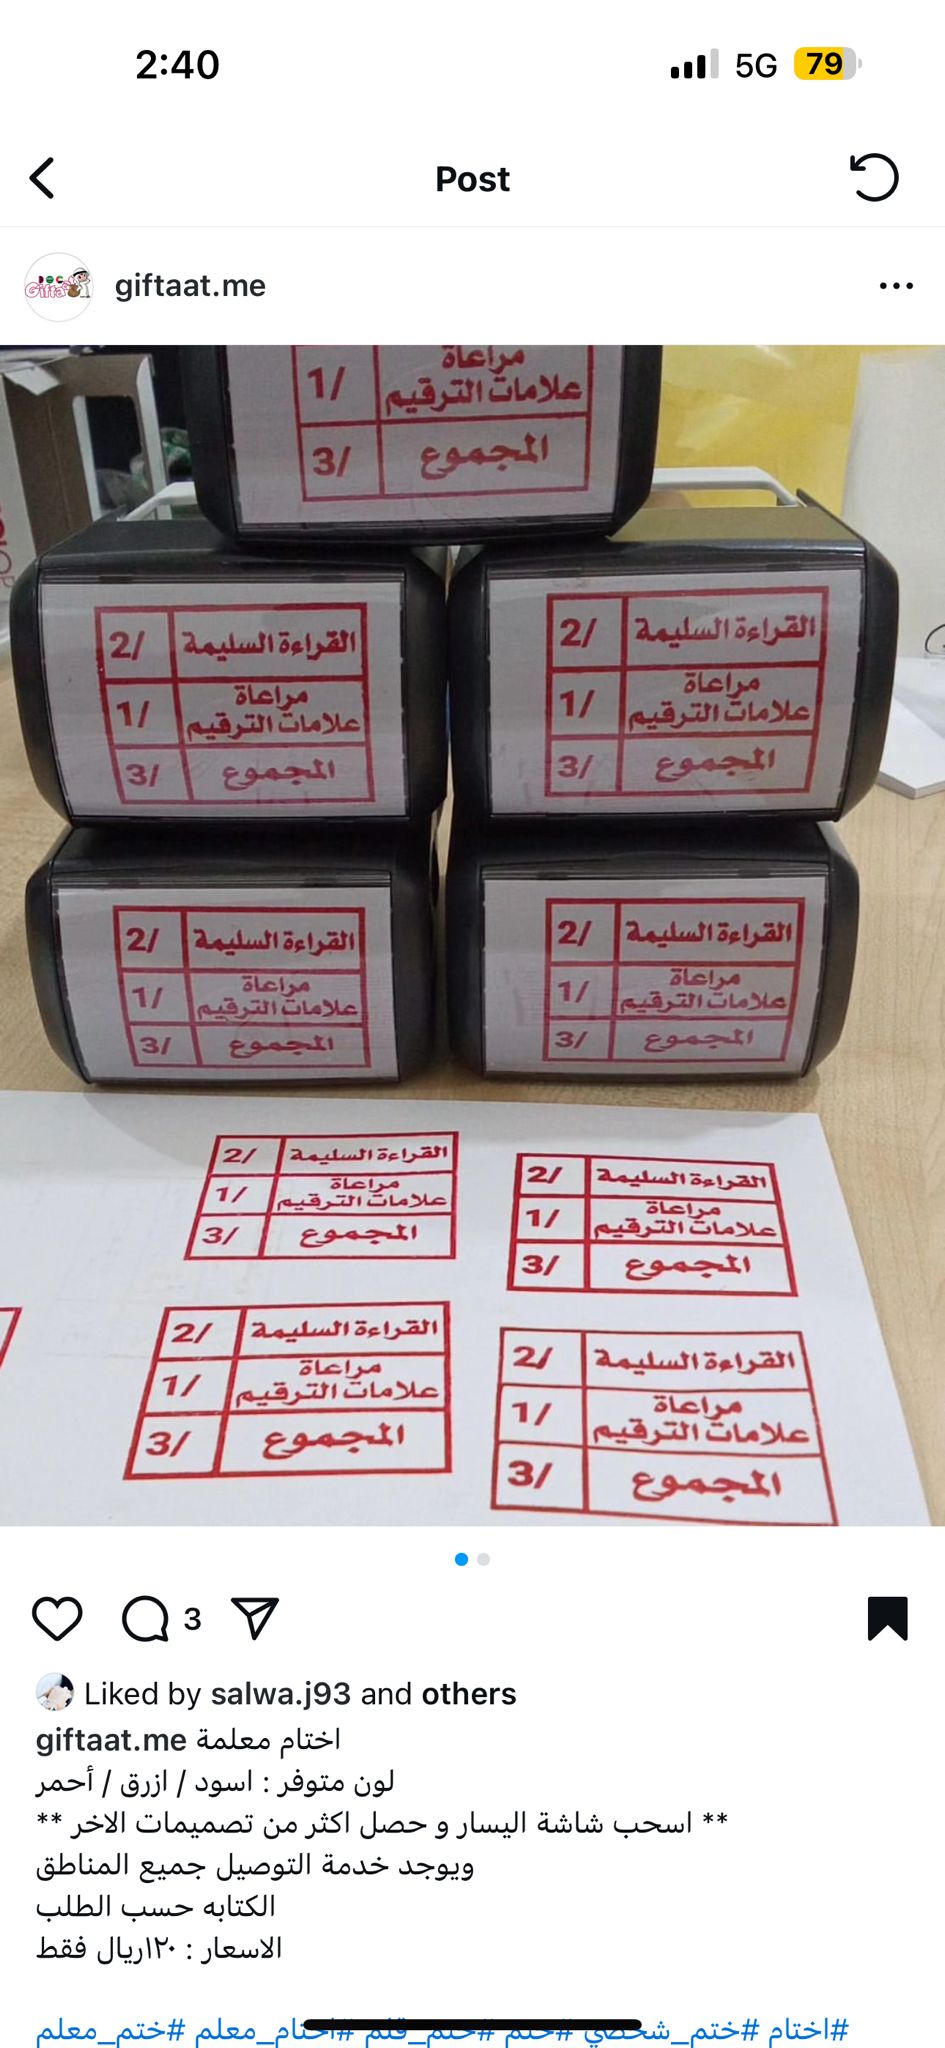 2:40
5G
79
Post
giftaat.me
مراعاة
علامات الترقيم
1/
المجموع
3/
القراءة السليمة
2/
مراعاة
علامات الترقيم
1/
المجموع
3/
القراءة السليمة
2/
مراعاة
علامات الترقيم
1/
المجموع
3/
القراءة السليمة
2/
مراعاة
علامات الترقيم
1/
المجموع
3/
القراءة السليمة
2/
مراعاة
علامات الترقيم
1/
المجموع
3/
القراءة السليمة
2/
مراعاة
علامات الترقيم
1/
المجموع
3/
القراءة السليمة
2/
مراعاة
علامات الترقيم
1/
المجموع
3/
القراءة السليمة
2/
مراعاة
علامات الترقيم
1/
المجموع
3/
القراءة السليمة
2/
مراعاة
علامات الترقيم
1/
المجموع
3/
3
Liked by salwa.j93 and others
giftaat.me اختام معلمة
لون متوفر : اسود / ازرق / أحمر
** اسحب شاشة اليسار و حصل اكثر من تصميمات الاخر **
ويوجد خدمة التوصيل جميع المناطق
الكتابه حسب الطلب
الاسعار : ١٢٠ريال فقط
#اختام #ختم_شخصي #ختم #ختم_قلم #اختام_معلم #ختم_معلم